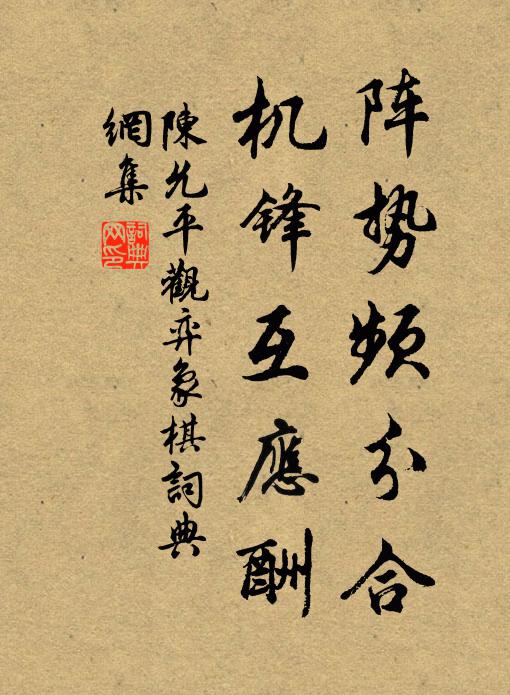 阵势频分合
机锋互應酬
陳允平觀弈象棋詞典
網集
詞典
网印